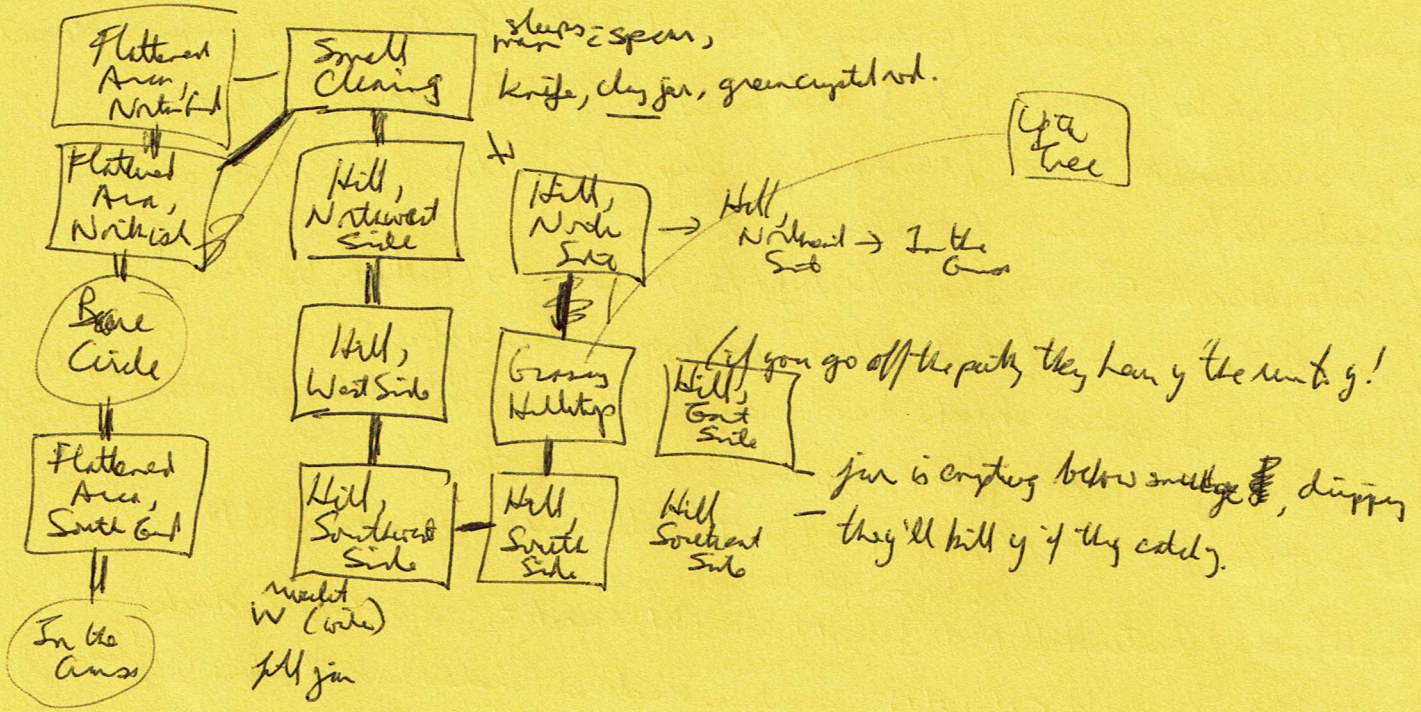 Flattened
Area,
North End
Small
Clearing
sleeping
man = spear,
knife, clay jar, green crystal rod.
Flattened
Area,
Northish
Hill,
Northwest
Side
Hill,
North
Side
Hill,
Northeast
Side
In the
Grass
Tree
Bare
Circle
Hill,
West Side
Grassy
Hilltop
(if you go off the path, they hear y the running!
Hill,
East
Side
Flattened
Area,
South End
Hill,
Southwest
Side
Hill,
South
Side
Hill
Southeast
Side
- jar is emptying below smudge, dripping
- they'll kill y if they catch y.
W (water)
fill jar
In the
Grass